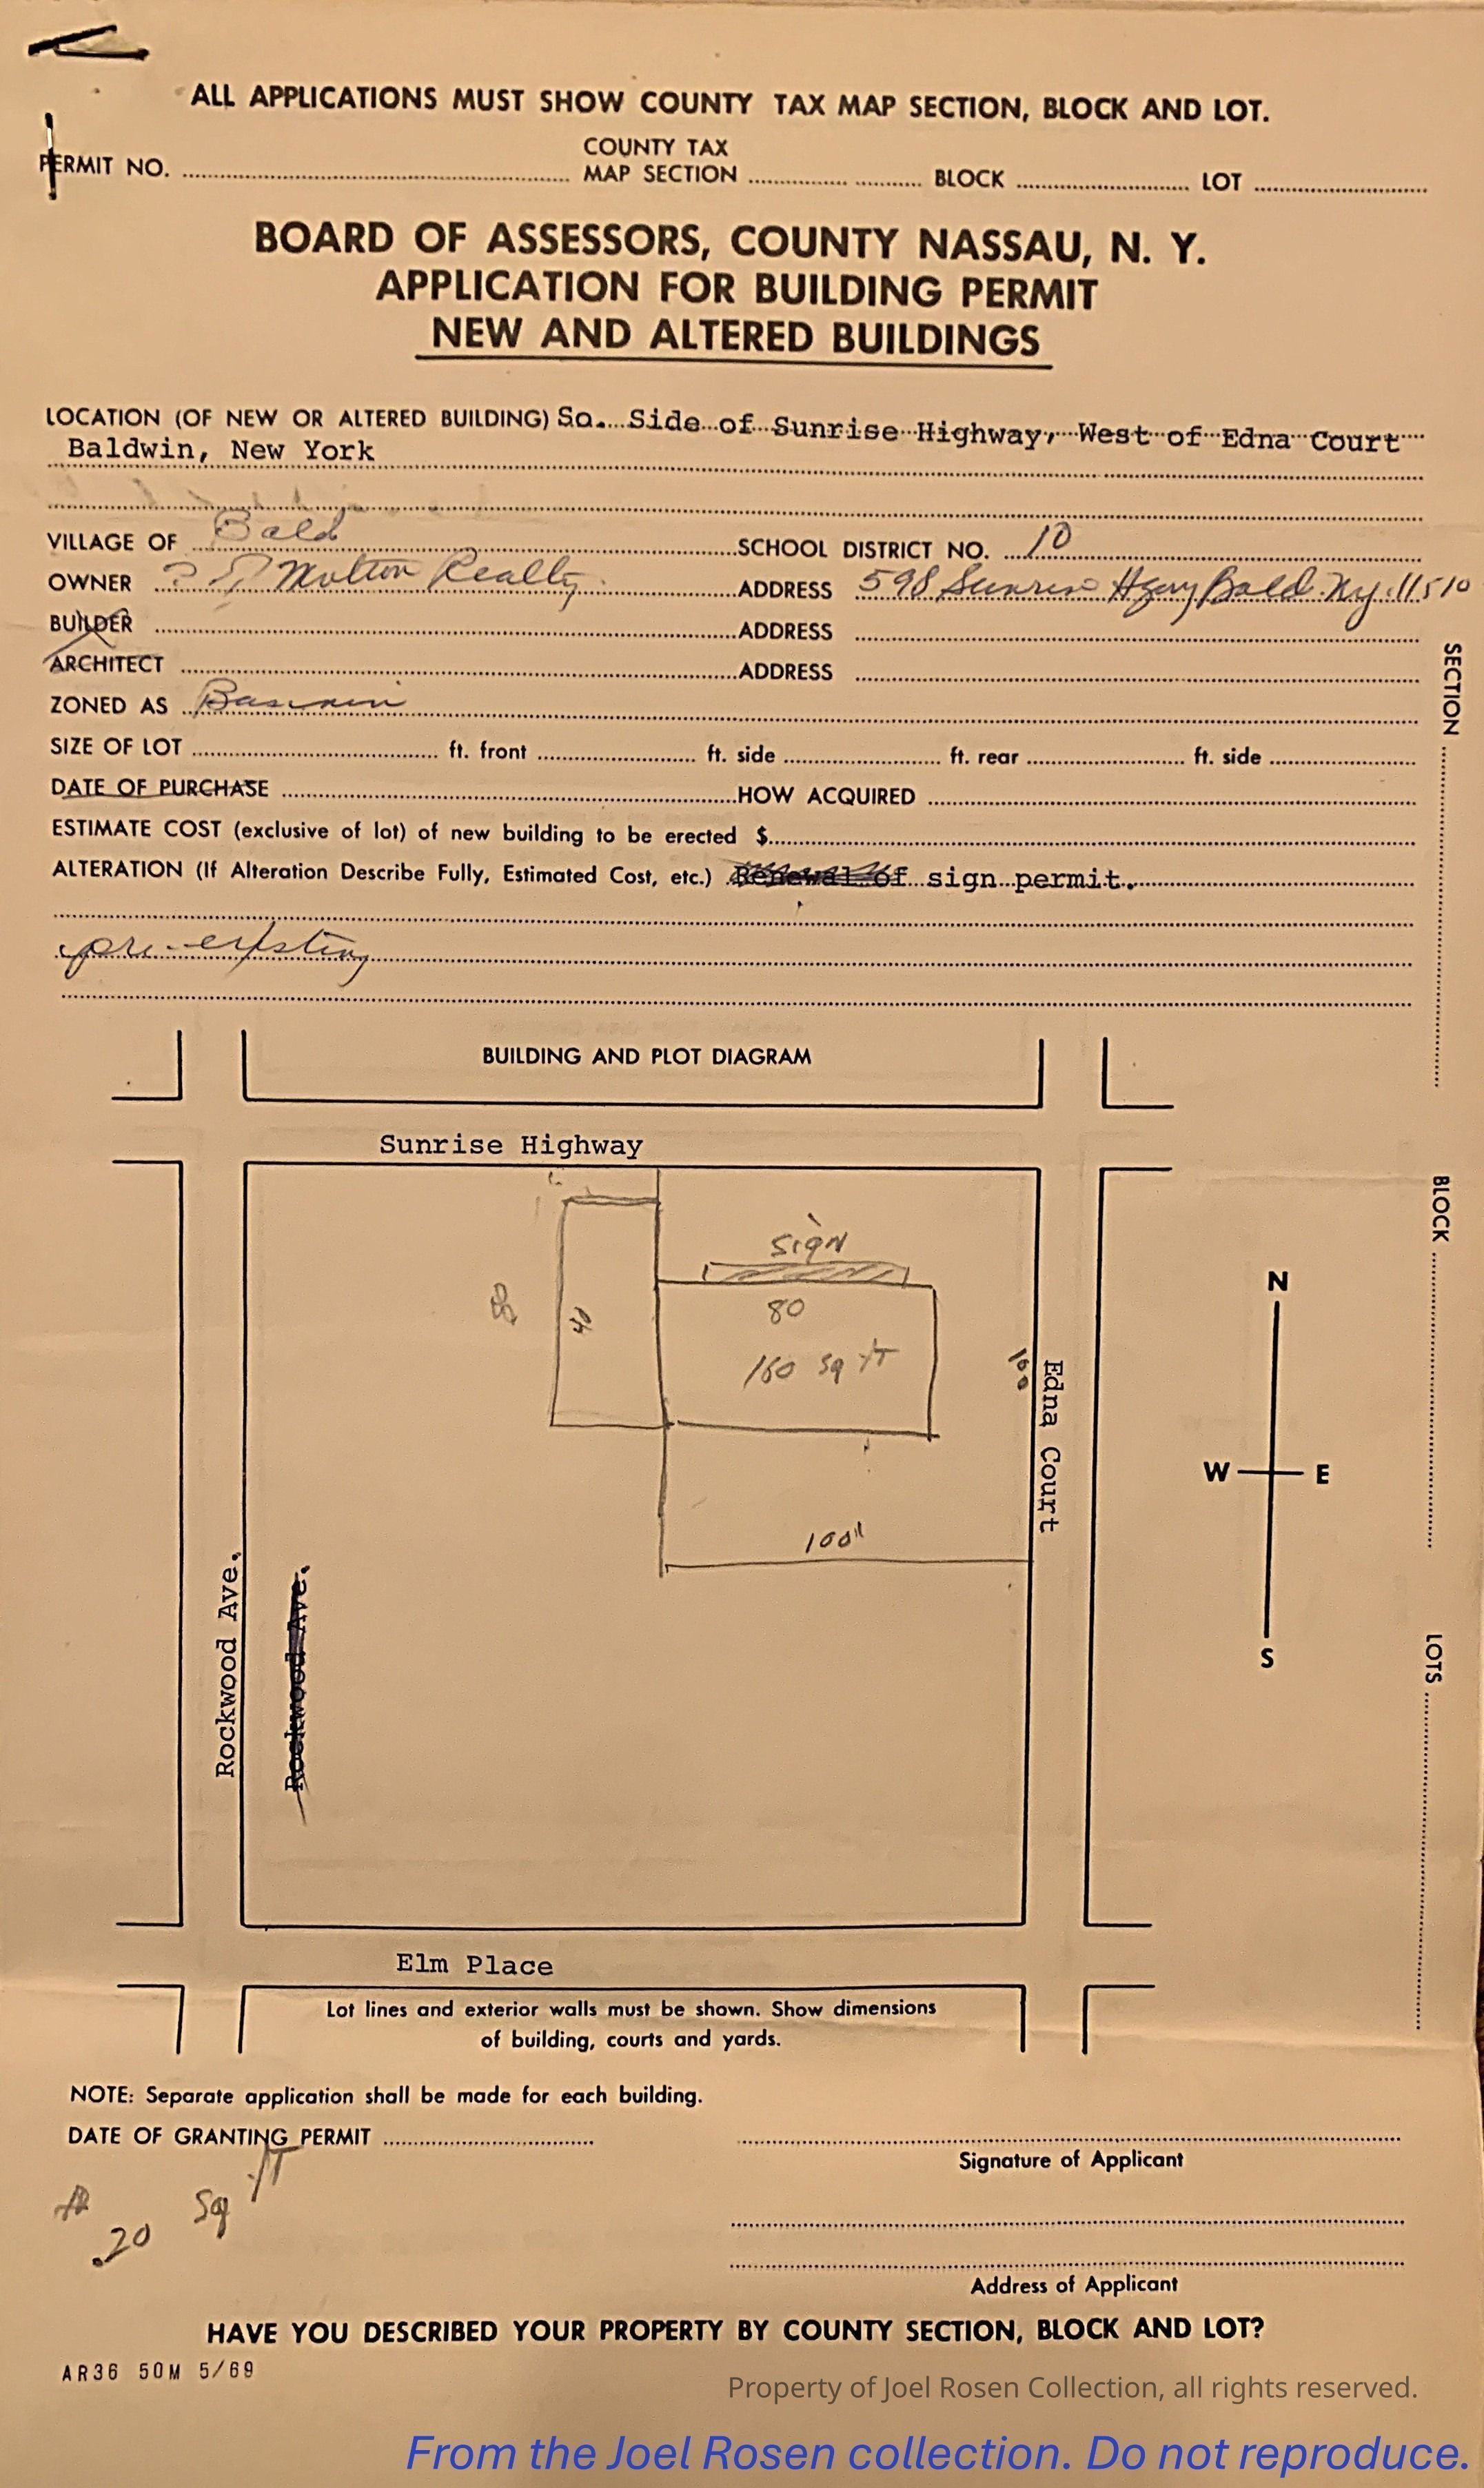 ALL APPLICATIONS MUST SHOW COUNTY TAX MAP SECTION, BLOCK AND LOT.
PERMIT NO. COUNTY TAX MAP SECTION BLOCK LOT
BOARD OF ASSESSORS, COUNTY NASSAU, N. Y.
APPLICATION FOR BUILDING PERMIT
NEW AND ALTERED BUILDINGS
LOCATION (OF NEW OR ALTERED BUILDING) So. Side of Sunrise Highway, West of Edna Court
Baldwin, New York
VILLAGE OF Bald SCHOOL DISTRICT NO. 10
OWNER Molton Realty ADDRESS 598 Sunrise Hgwy Bald. Ny. 11510
BUILDER ADDRESS
ARCHITECT ADDRESS
ZONED AS
SIZE OF LOT ft. front ft. side ft. rear ft. side
DATE OF PURCHASE HOW ACQUIRED
ESTIMATE COST (exclusive of lot) of new building to be erected $
ALTERATION (If Alteration Describe Fully, Estimated Cost, etc.) Renewal of sign permit.
pre-existing
SECTION
BUILDING AND PLOT DIAGRAM
Sunrise Highway
BLOCK
sign
80
40
160 sq ft
100
Edna Court
N
W E
S
100"
Rockwood Ave.
Rockwood Ave.
LOTS
Elm Place
Lot lines and exterior walls must be shown. Show dimensions
of building, courts and yards.
NOTE: Separate application shall be made for each building.
DATE OF GRANTING PERMIT
Signature of Applicant
.20 Sq ft
Address of Applicant
HAVE YOU DESCRIBED YOUR PROPERTY BY COUNTY SECTION, BLOCK AND LOT?
AR36 50M 5/69
Property of Joel Rosen Collection, all rights reserved.
From the Joel Rosen collection. Do not reproduce.